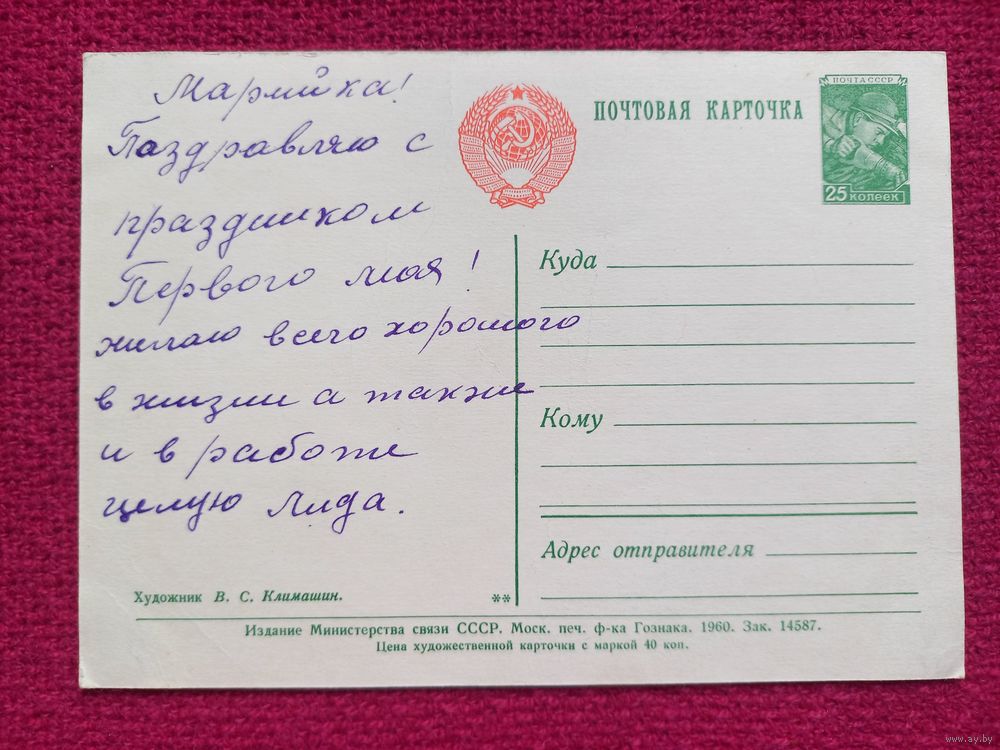 Марийка!
Паздравляю с
праздником
Первого мая!
желаю всего хорошого
в жизни а также
и в работе
целую Лида.
ПОЧТОВАЯ КАРТОЧКА
ПОЧТА СССР
25 копеек
Куда
Кому
Адрес отправителя
Художник В. С. Климашин.
**
Издание Министерства связи СССР. Моск. печ. ф-ка Гознака. 1960. Зак. 14587.
Цена художественной карточки с маркой 40 коп.
www.ay.by